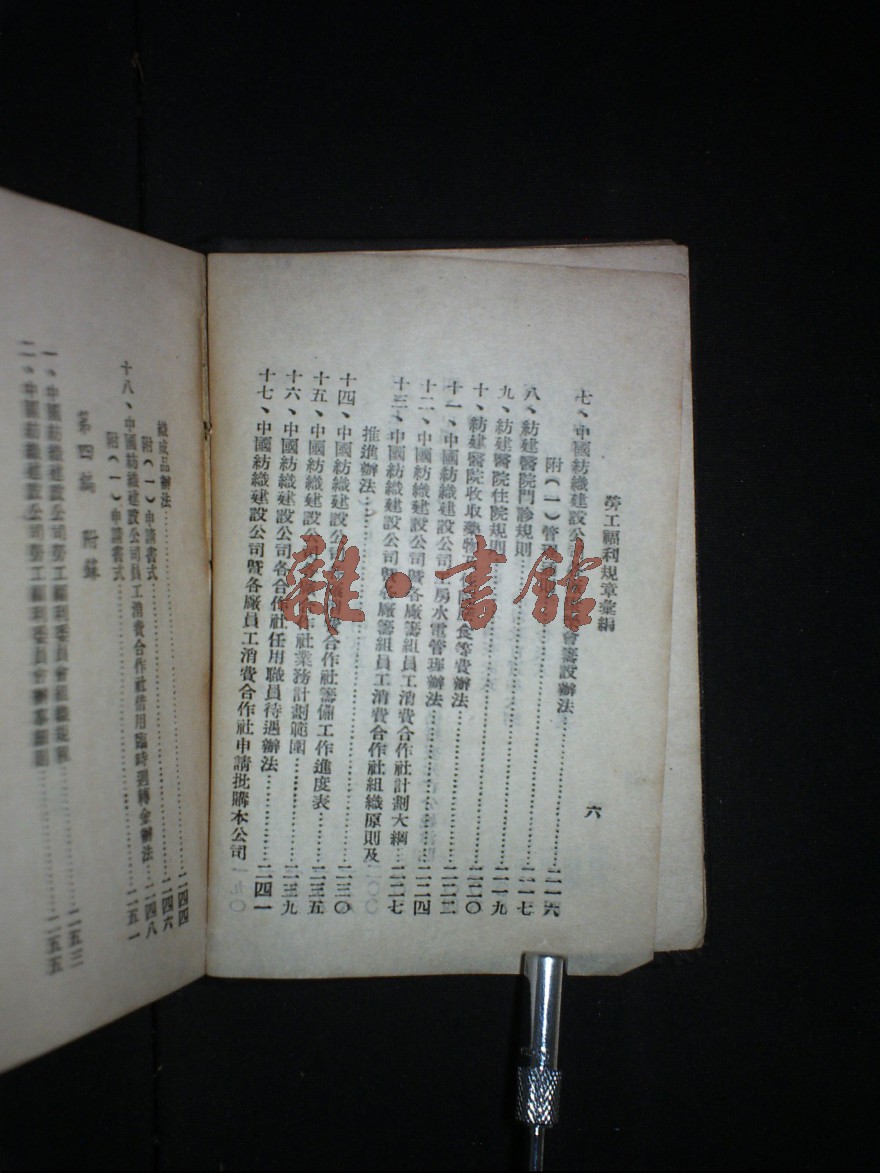 勞工福利規章彙編
六
七、中國紡織建設公司 會籌設辦法
附(一)管 二一六
八、紡建醫院門診規則 二一七
九、紡建醫院住院規則 二一九
十、紡建醫院收取藥物 食等費辦法 二二〇
十一、中國紡織建設公司 房水電管理辦法 二二二
十二、中國紡織建設公司暨各廠籌組員工消費合作社計劃大綱 二二四
十三、中國紡織建設公司暨各廠籌組員工消費合作社組織原則及
推進辦法 二二七
十四、中國紡織建設公司 費合作社籌備工作進度表 二三〇
十五、中國紡織建設公司 作社業務計劃範圍 二三五
十六、中國紡織建設公司各合作社任用職員待遇辦法 二三九
十七、中國紡織建設公司暨各廠員工消費合作社申請批購本公司 二四一
織成品辦法 二四四
附(一)申請書式 二四六
十八、中國紡織建設公司員工消費合作社借用臨時週轉金辦法 二四八
附(一)申請書式 二五一
第四編 附錄
一、中國紡織建設公司勞工福利委員會組織規程 二五三
二、中國紡織建設公司勞工福利委員會辦事細則 二五五
雜·書館